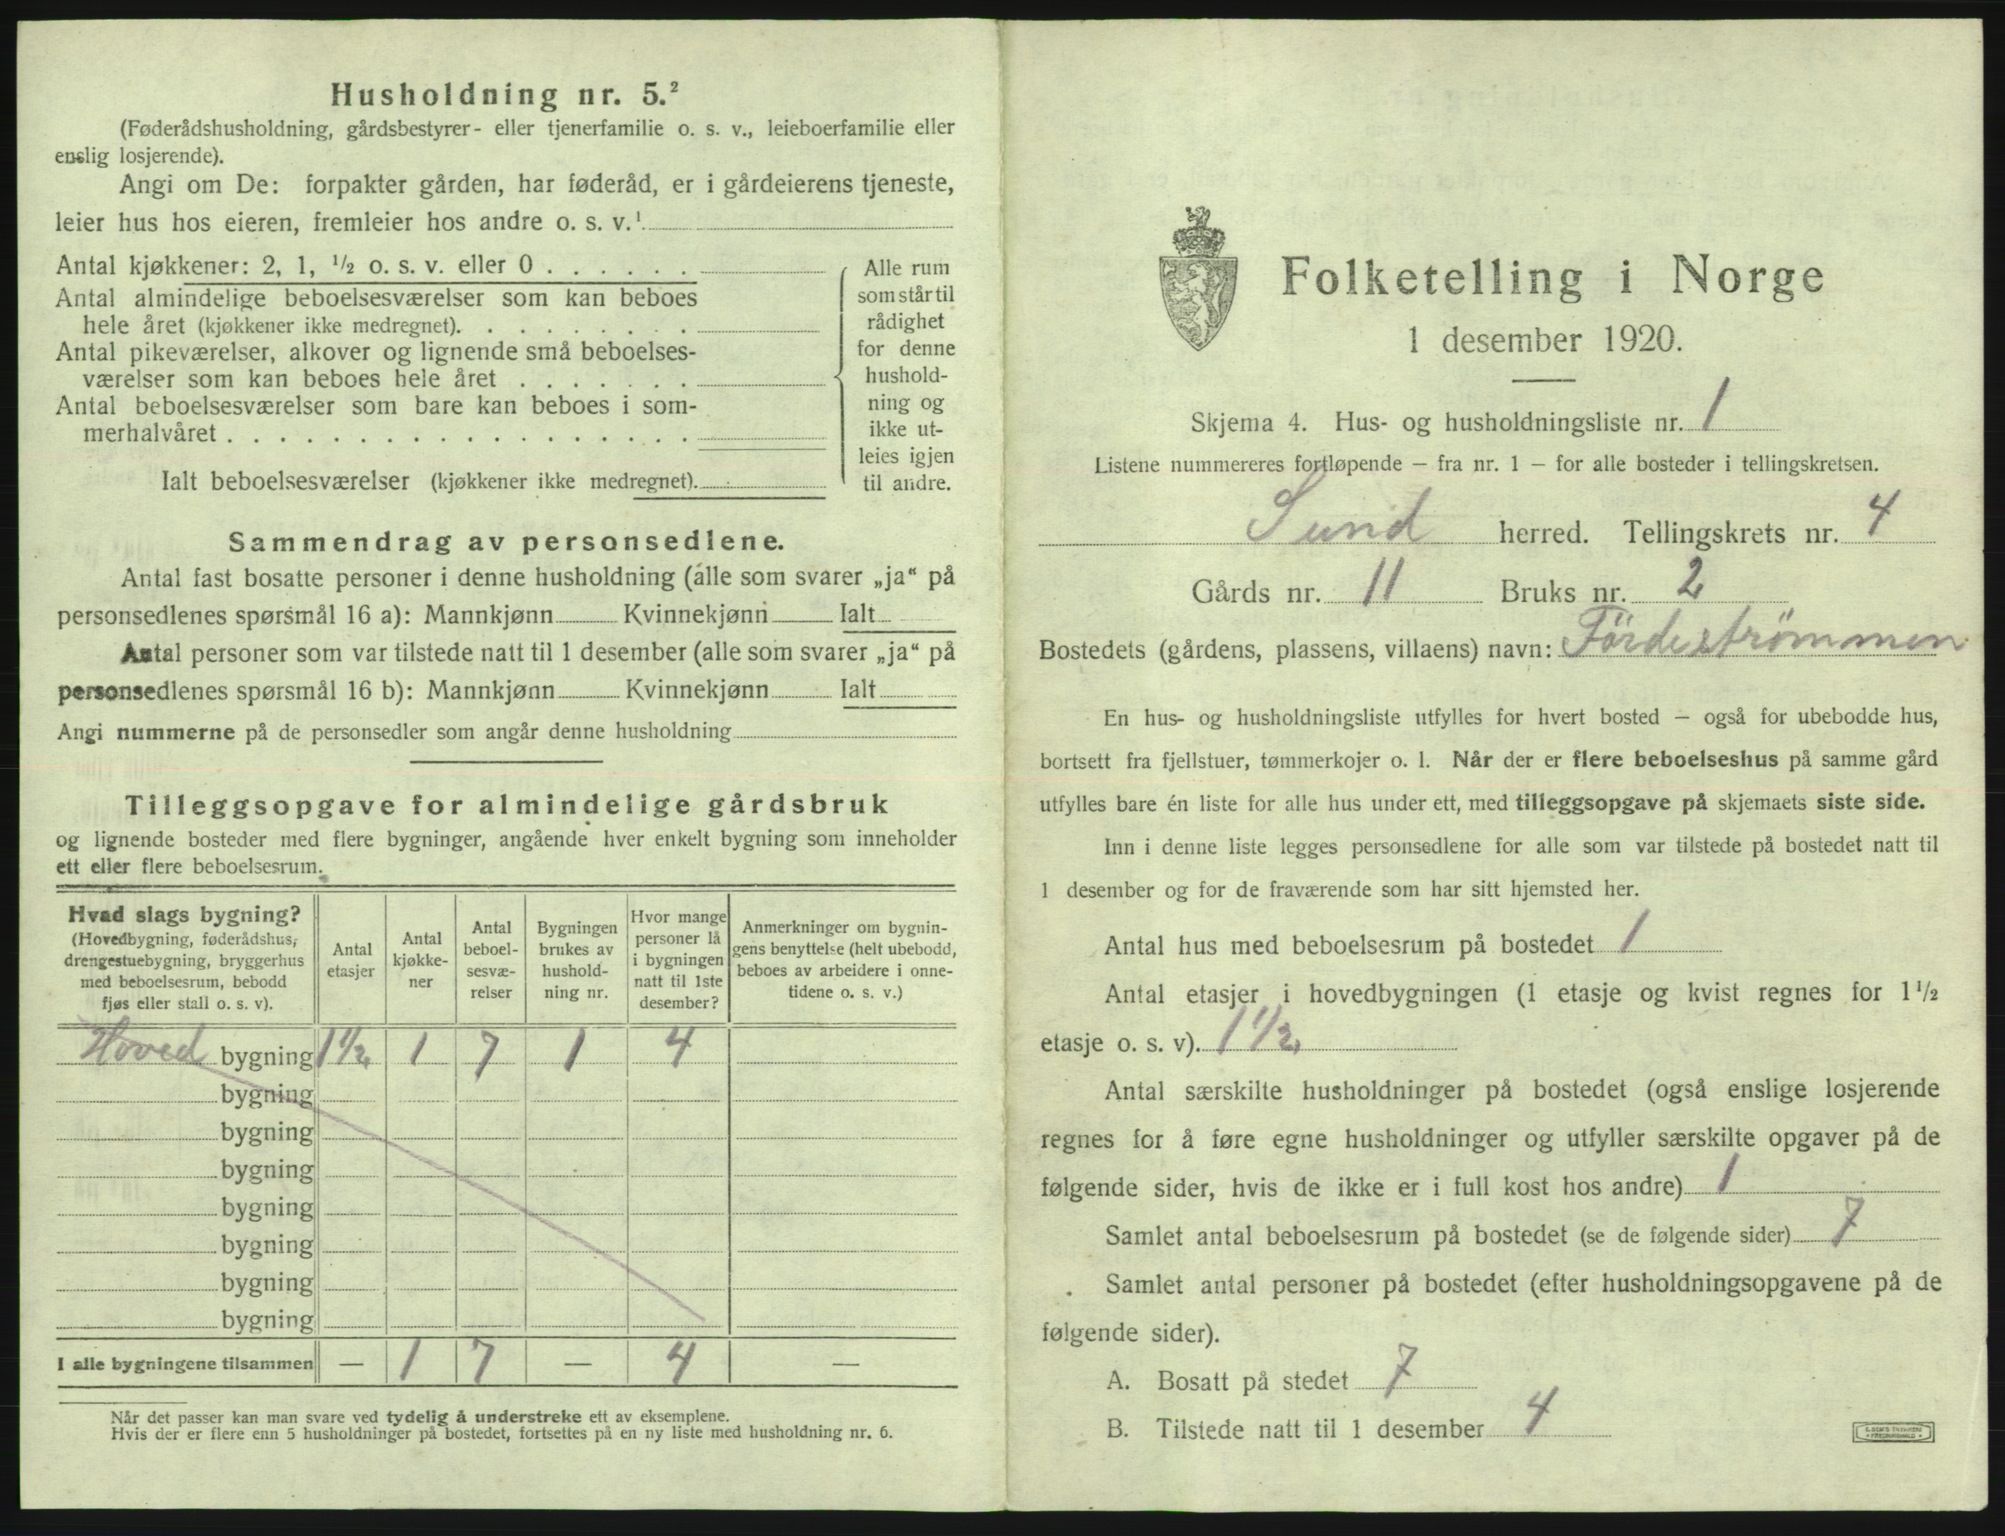 Husholdning nr. 5.²
(Føderådshusholdning, gårdsbestyrer- eller tjenerfamilie o. s. v., leieboerfamilie eller
enslig losjerende).
Angi om De: forpakter gården, har føderåd, er i gårdeierens tjeneste,
leier hus hos eieren, fremleier hos andre o. s. v.¹
Antal kjøkkener: 2, 1, ½ o. s. v. eller 0 . . . . . .
Antal almindelige beboelsesværelser som kan beboes
hele året (kjøkkener ikke medregnet). . . . . . . . .
Antal pikeværelser, alkover og lignende små beboelses-
værelser som kan beboes hele året . . . . . . .
Antal beboelsesværelser som bare kan beboes i som-
merhalvåret . . . . . . . . . . . . . . . . . .
Ialt beboelsesværelser (kjøkkener ikke medregnet).
Alle rum
som står til
rådighet
for denne
hushold-
ning og
ikke ut-
leies igjen
til andre.
Sammendrag av personsedlene.
Antal fast bosatte personer i denne husholdning (alle som svarer „ja“ på
personsedlenes spørsmål 16 a): Mannkjønn Kvinnekjønn Ialt
Antal personer som var tilstede natt til 1 desember (alle som svarer „ja“ på
personsedlenes spørsmål 16 b): Mannkjønn Kvinnekjønn Ialt
Angi nummerne på de personsedler som angår denne husholdning
Tilleggsopgave for almindelige gårdsbruk
og lignende bosteder med flere bygninger, angående hver enkelt bygning som inneholder
ett eller flere beboelsesrum.
Hvad slags bygning?
(Hovedbygning, føderådshus,
drengestuebygning, bryggerhus
med beboelsesrum, bebodd
fjøs eller stall o. s. v).
Antal
etasjer
Antal
kjøkke-
ner
Antal
beboel-
sesvæ-
relser
Bygningen
brukes av
hushold-
ning nr.
Hvor mange
personer lå
i bygningen
natt til 1ste
desember?
Anmerkninger om bygnin-
gens benyttelse (helt ubebodd,
beboes av arbeidere i onne-
tidene o. s. v.)
Hoved bygning 1½ 1 7 1 4
bygning
bygning
bygning
bygning
bygning
bygning
bygning
I alle bygningene tilsammen — 1 7 — 4 —
Når det passer kan man svare ved tydelig å understreke ett av eksemplene.
Hvis der er flere enn 5 husholdninger på bostedet, fortsettes på en ny liste med husholdning nr. 6.
Folketelling i Norge
1 desember 1920.
Skjema 4. Hus- og husholdningsliste nr. 1
Listene nummereres fortløpende — fra nr. 1 — for alle bosteder i tellingskretsen.
Sund herred. Tellingskrets nr. 4
Gårds nr. 11 Bruks nr. 2
Bostedets (gårdens, plassens, villaens) navn: Fördeströmmen
En hus- og husholdningsliste utfylles for hvert bosted — også for ubebodde hus,
bortsett fra fjellstuer, tømmerkojer o. l. Når der er flere beboelseshus på samme gård
utfylles bare én liste for alle hus under ett, med tilleggsopgave på skjemaets siste side.
Inn i denne liste legges personsedlene for alle som var tilstede på bostedet natt til
1 desember og for de fraværende som har sitt hjemsted her.
Antal hus med beboelsesrum på bostedet 1
Antal etasjer i hovedbygningen (1 etasje og kvist regnes for 1½
etasje o. s. v). 1½
Antal særskilte husholdninger på bostedet (også enslige losjerende
regnes for å føre egne husholdninger og utfyller særskilte opgaver på de
følgende sider, hvis de ikke er i full kost hos andre) 1
Samlet antal beboelsesrum på bostedet (se de følgende sider) 7
Samlet antal personer på bostedet (efter husholdningsopgavene på de
følgende sider).
A. Bosatt på stedet 7
B. Tilstede natt til 1 desember 4